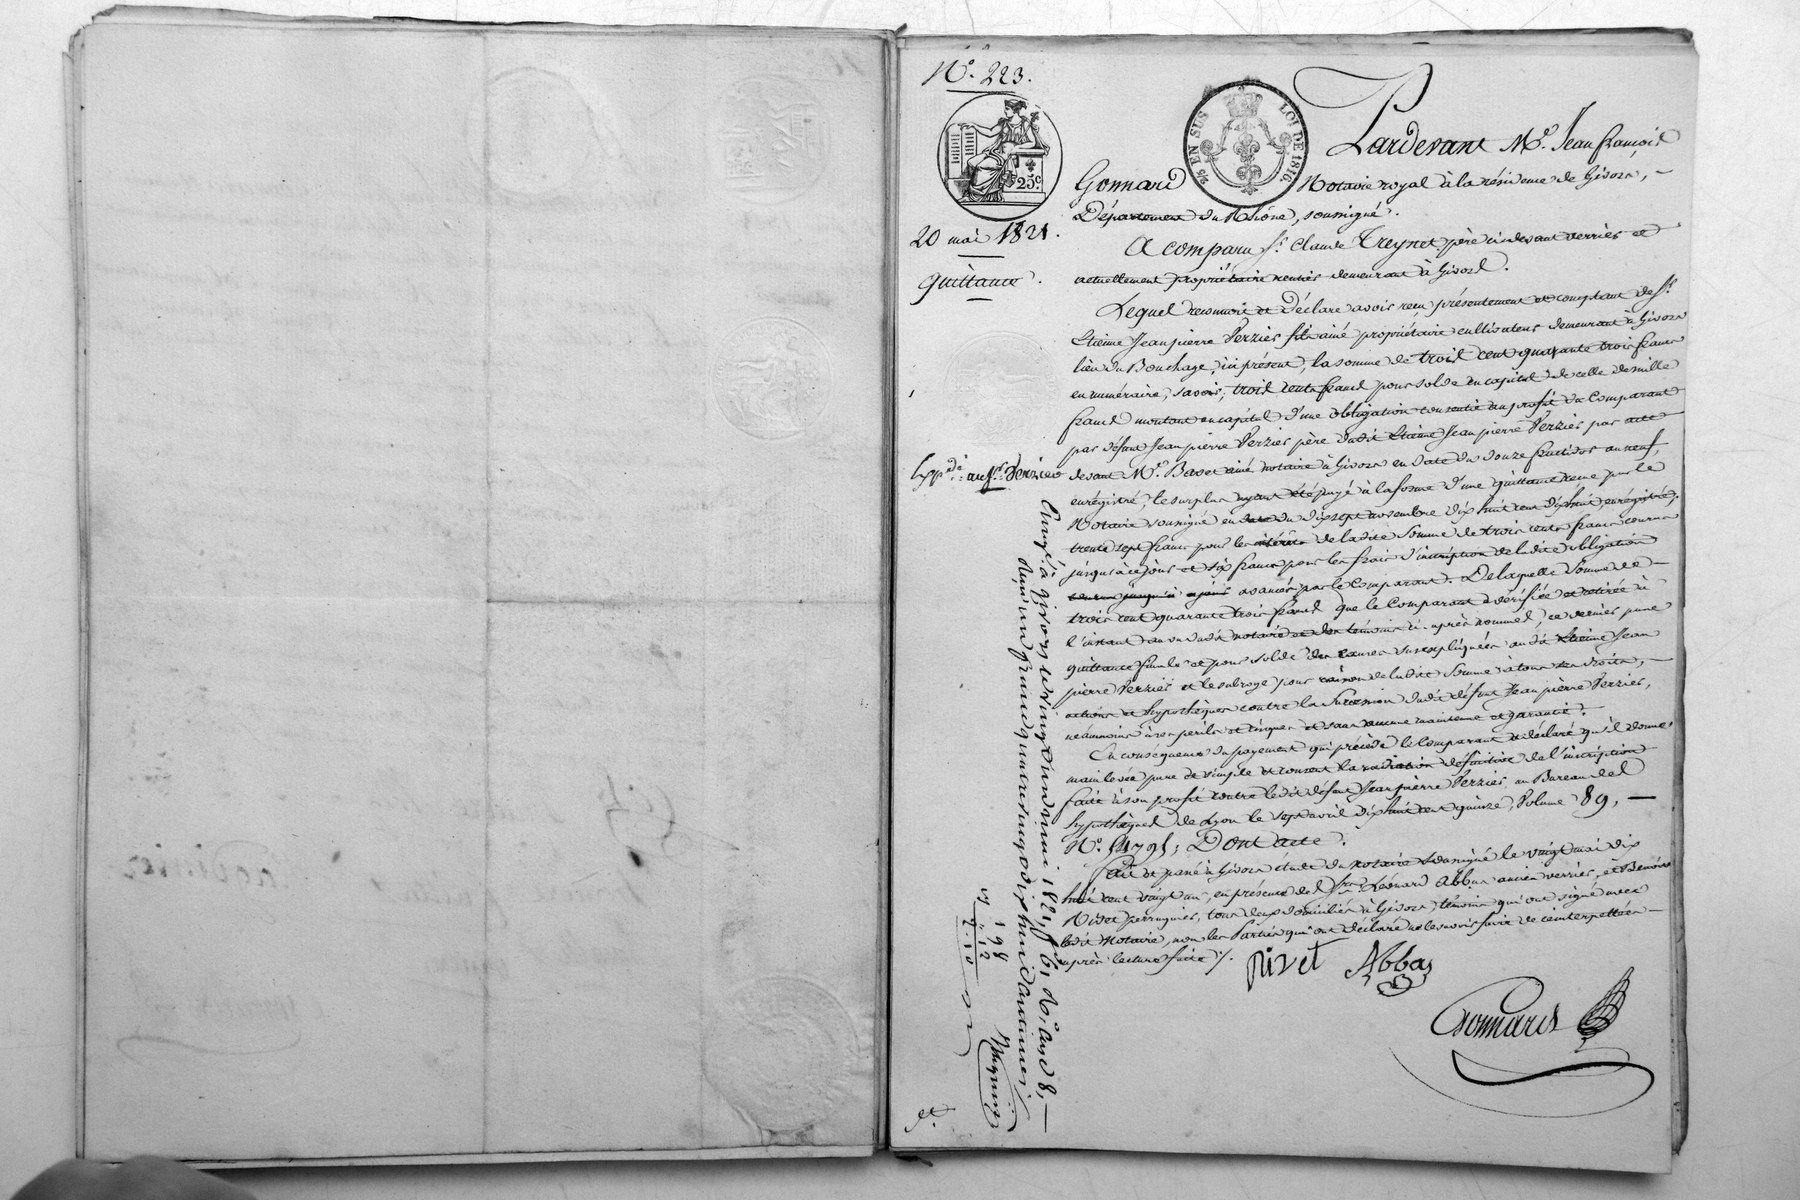 N.° 223.
25.c
5/5 EN SUS LOI DE 1816.
20 mai 1821.
quittance.
Expéd.é au s.r Verzieu
Pardevant M.e Jean françois
Gonnard Notaire royal à la résidence de Givors, –
Département du Rhône, soussigné.
A comparu s.r Claude Treynet père ci devant verrier et
actuellement propriétaire rentier demeurant à Givors.
Lequel reconnoit et Déclare avoir reçu présentement et comptant de s.r
Etienne Jean pierre Verzier fils ainé propriétaire cultivateur demeurant à Givors
lieu du Bouchage, ici présent, la somme de trois cent quarante trois francs
en numéraire, savoir, trois cents francs pour solde en capital de celle de mille
francs montant en capital d'une obligation consentie au profit du Comparant
par défunt Jean pierre Verzier père dudit Etienne Jean pierre Verzier par acte
devant M.e Bavet ainé notaire à Givors en date du douze fructidor an neuf,
enregistré, le surplus ayant été payé à la forme d'une quittance reçue par le
Notaire soussigné en date du dix sept novembre dix huit cent dix huit enregistrée,
trente sept francs pour les intérêts de ladite somme de trois cents francs courus
jusqu'à ce jour et six francs pour les frais d'inscription de ladite obligation
avancés par le Comparant. De laquelle somme de –
trois cent quarante trois francs que le Comparant a vérifiée et retirée à
l'instant au vu dudit notaire et des témoins ci-après nommés, ce dernier passe
quittance finale et pour solde des causes sus expliquées audit Etienne Jean
pierre Verzier et le subroge pour raison de ladite somme à tous ses droits, –
actions et hypothèques contre la succession dudit défunt Jean pierre Verzier,
néanmoins à ses périls et risques et sans aucune maintenue et garantie.
En conséquence du payement qui précède le Comparant a déclaré qu'il donne
main levée pure et simple et consent la radiation définitive de l'inscription
faite à son profit contre ledit défunt Jean pierre Verzier au Bureau des
hypothèques de Lyon le sept avril dix huit cent quinze, Volume 89, –
Dont acte.
Fait et passé à Givors étude du notaire soussigné le vingt mai dix
huit cent vingt un, en présence des s.rs Léonard Abbas ancien verrier, et Benoît
Rivet perruquier, tous deux domiciliés à Givors, témoins qui ont signé avec
ledit Notaire, non les Parties qui ont déclaré ne le savoir faire de ce interpellées –
après lecture faite /.
Rivet Abbas
Gonnard
Enreg.é à givors le vingt un mai 1821, f.o 61 R.o case 8, –
Reçu un franc quatre vingt dix huit centimes
1 98
" 12
2. 10